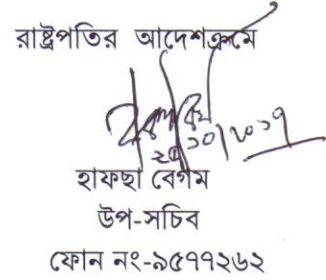 রাষ্ট্রপতির আদেশক্রমে
হাফছা বেগম
উপ-সচিব
ফোন নং-৯৫৭৭২৬২